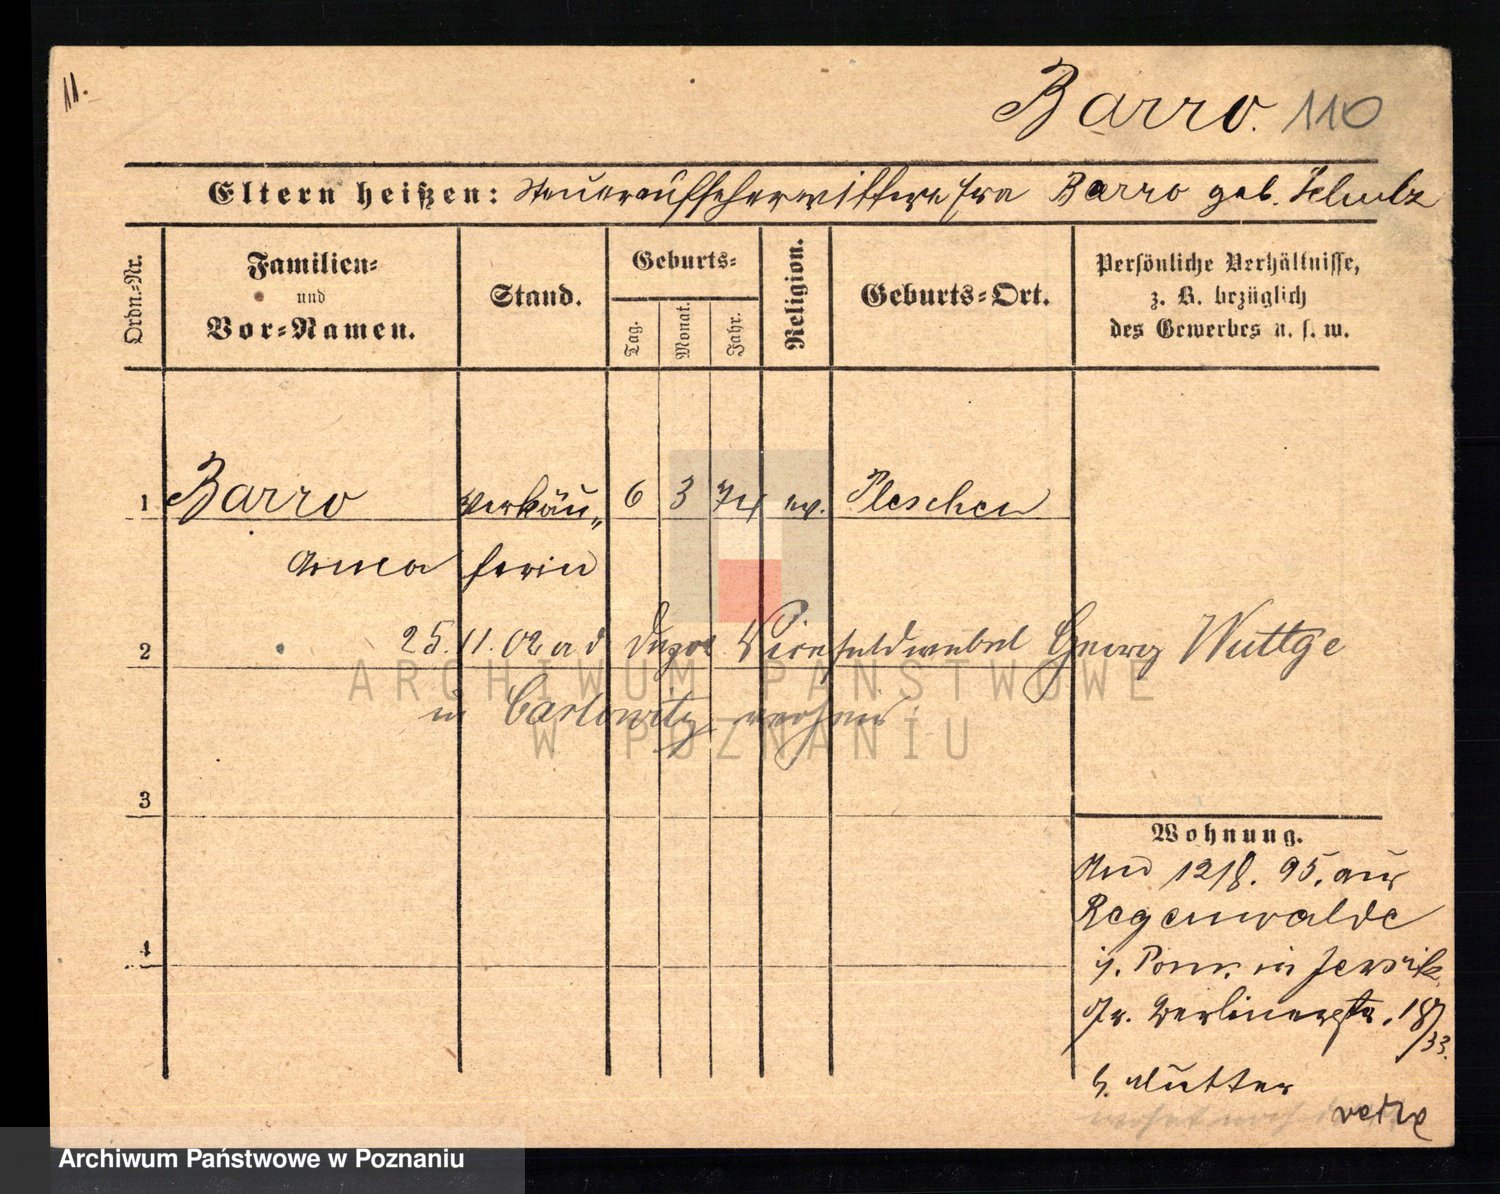 11.
Barro. 110
Eltern heißen: Steueraufseherwittwe Fra Barro geb. Schulz
Ordn.-Nr.
Familien-
und
Vor-Namen.
Stand.
Geburts-
Tag.
Monat.
Jahr.
Religion.
Geburts-Ort.
Persönliche Verhältnisse,
z. B. bezüglich
des Gewerbes u. s. w.
1 Barro Verkäu- 6 3 74 ev. Pleschen
Anna ferin
2 25.11.02 Vizefeldwebel Georg Wuttge
in Carlowitz
3
Wohnung.
12/8. 95. aus
Regenwalde
i. Pom. in Jersitz
Gr. Berlinerstr. 18/33.
b. Mutter
4
verte
ARCHIWUM PAŃSTWOWE
W POZNANIU
Archiwum Państwowe w Poznaniu